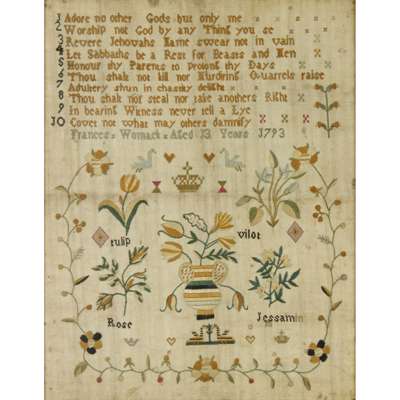 1 Adore no other Gods but only me
2 Worship not God by any Thing you se
3 Revere Jehovahs Name swear not in vain
4 Let Sabbaths be a Rest for Beasts and Men
5 Honour thy Parents to prolong thy Days
6 Thou shalt not kill nor Murdring Quarrels raise
7 Adultery shun in chastity delight
8 Thou shalt not steal nor take anothers Right
9 In bearing Witness never tell a Lye
10 Covet not what may others damnify
Frances Womack Aged 13 Years 1793
tulip
vilot
Rose
Jessamin